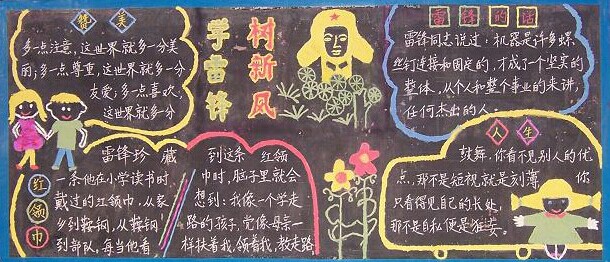 赞美
多一点注意，这世界就多一分美
丽；多一点尊重，这世界就多一分
友爱；多一点喜欢，
这世界就多一分
学雷锋
树新风
雷锋的话
雷锋同志说过：机器是许多螺
丝钉连接和固定的，才成了个坚实的
整体，从个人和整个事业的来讲，
任何杰出的人。
红领巾
雷锋珍藏
一条他在小学读书时
戴过的红领巾，从家
乡到鞍钢，从鞍钢
到部队，每当他看
到这条红领
巾时，脑子里就会
想到：我像一个学走
路的孩子，党像母亲一
样扶着我，领着我，教走路
人生
鼓舞，你看不见别人的优
点，那不是短视就是刻薄，你
只看得见自己的长处，
那不是自私便是狂妄。